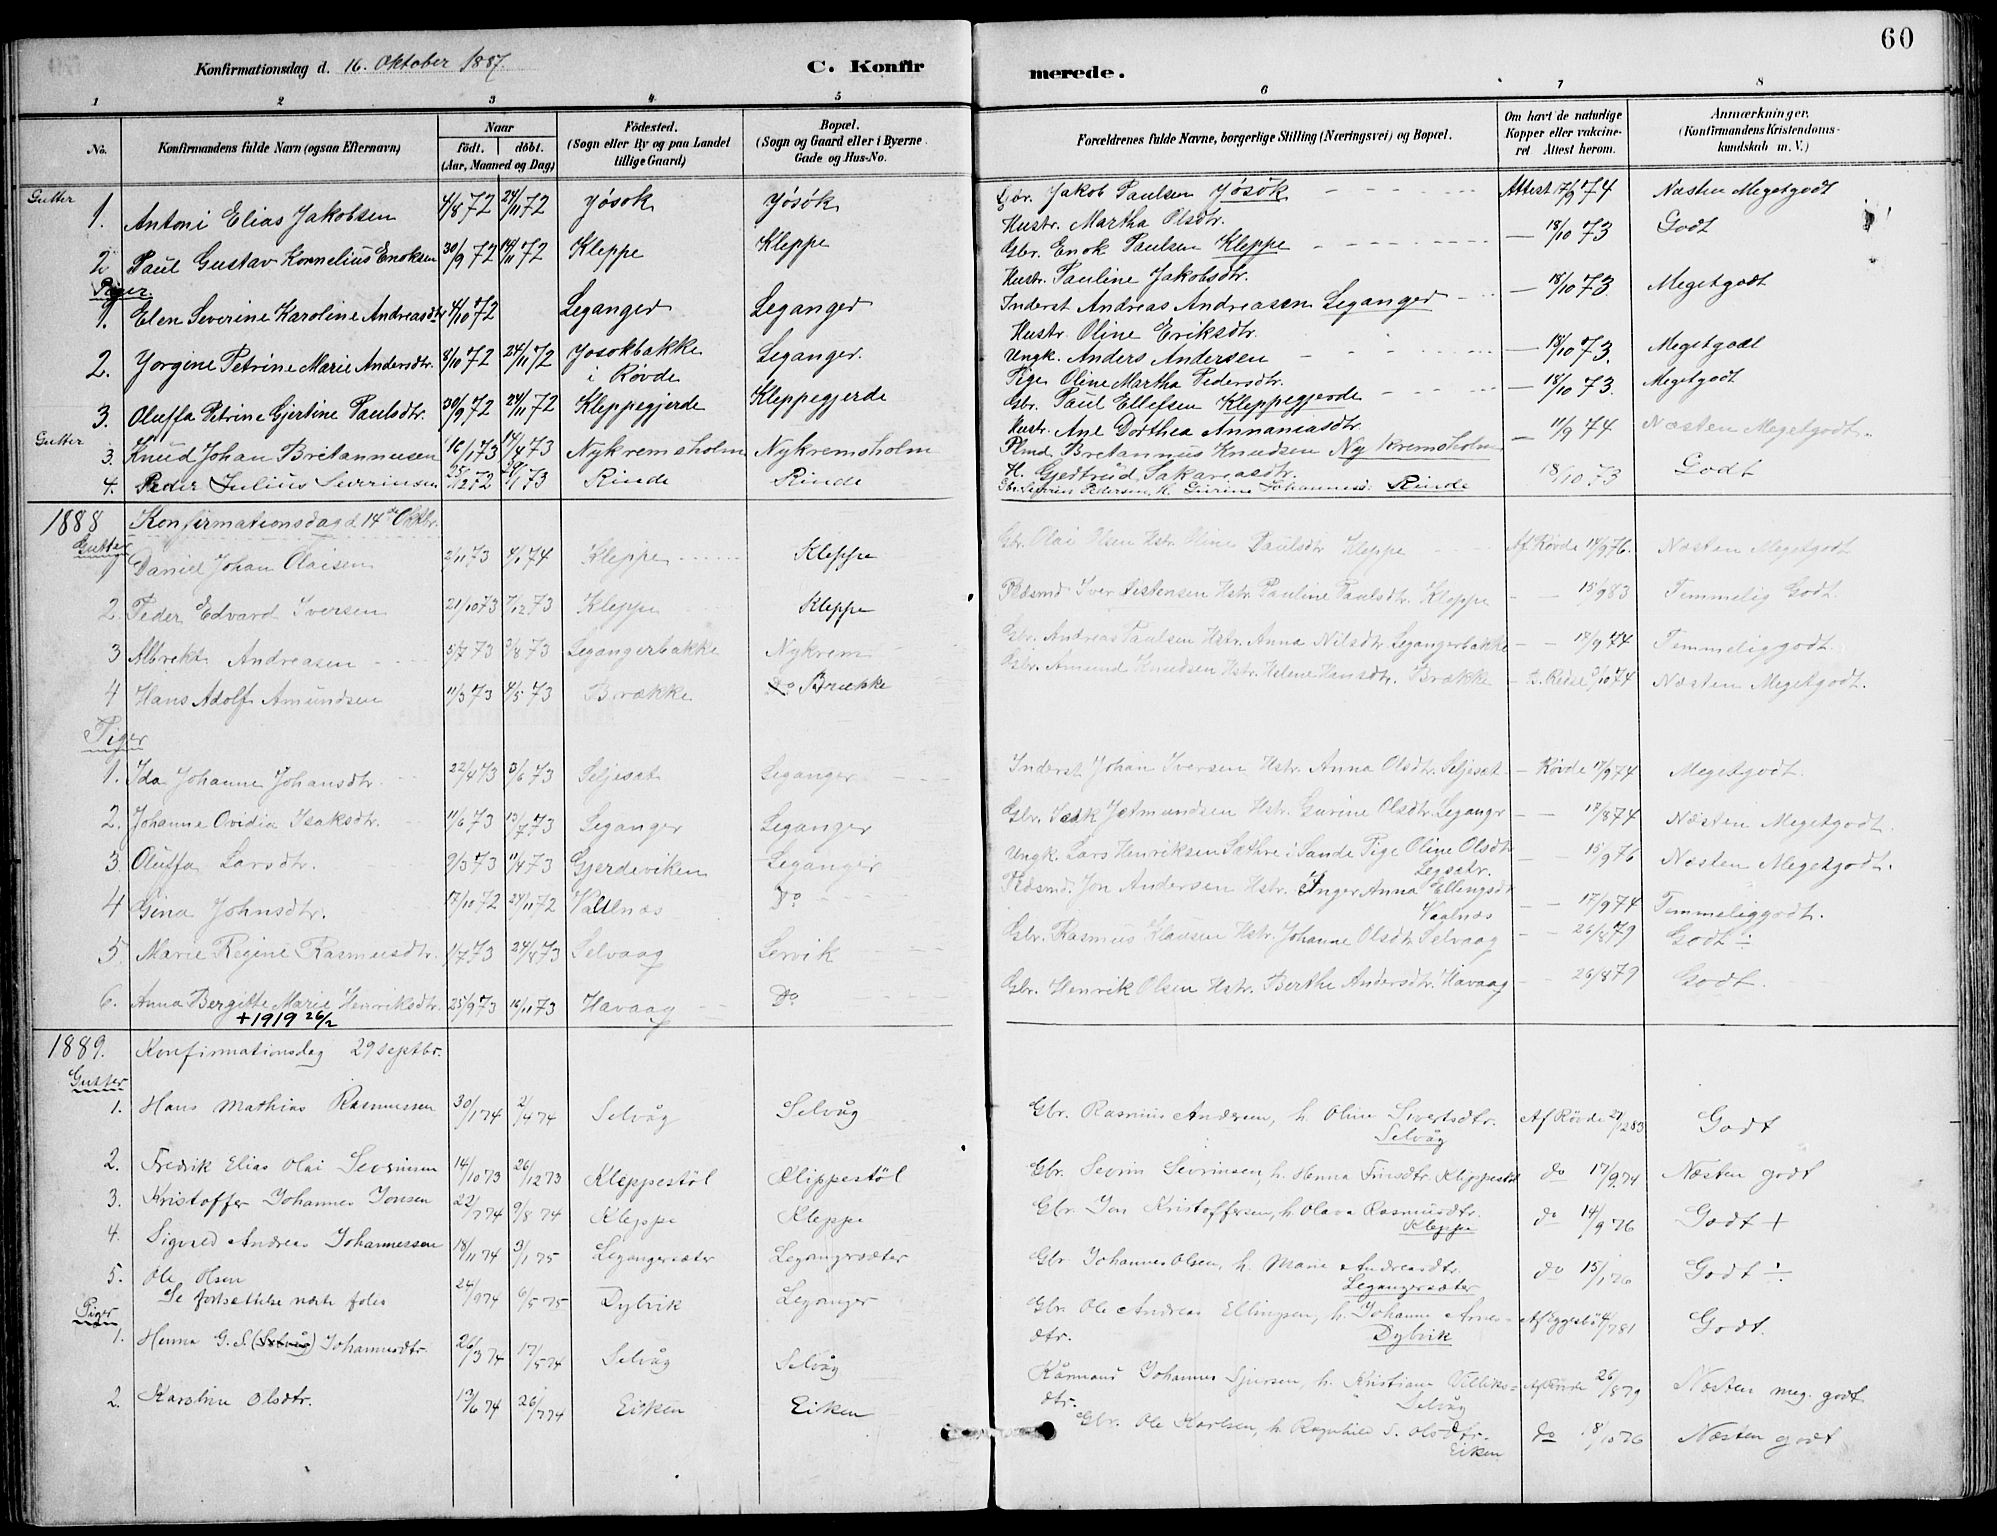 60
Konfirmationsdag d. 16. Oktober 1887. C. Konfirmerede.
1 2 3 4 5 6 7 8
No. Konfirmandens fulde Navn (ogsaa Efternavn) Naar födt. döbt. (Aar, Maaned og Dag) Födested. (Sogn eller By og paa Landet tillige Gaard) Bopæl. (Sogn og Gaard eller i Byerne Gade og Hus-No. Forældrenes fulde Navne, borgerlige Stilling (Næringsvei) og Bopæl. Om havt de naturlige Kopper eller vaccineret Attest herom. Anmærkninger. (Konfirmandens Kristendomskundskab m. V.)
Gutter
1. Antoni Elias Jakobsen 4/8 72 24/11 72 Jøsok Jøsök Gbr. Jakob Paulsen Jøsök Attest 17/9 74 Næsten Megetgodt
Hustr. Martha Olsdtr.
2 Paul Gustav Kornelius Enoksen 30/9 72 14/11 72 Kleppe Kleppe Gbr. Enok Paulsen Kleppe — 18/10 73 Godt
Hustr. Pauline Jakobsdtr.
Piger.
1. Elen Severine Karoline Andreasdtr 4/10 72 Leganger Leganger Inderst Andreas Andreasen Leganger — 18/10 73. Megetgodt
Hustr. Oline Eriksdtr.
2. Jorgine Petrine Marie Andersdtr. 8/10 72 24/11 72 Josokbakke i Røvde Leganger. Ungk. Anders Andersen — 18/10 73. Megetgodt
Pige Oline Martha Pedersdtr.
3. Oluffa Petrine Gjertine Paulsdtr. 30/9 72 24/11 72 Kleppegjerde Kleppegjerde Gbr. Paul Ellefsen Kleppegjerde — 18/10 73. Megetgodt
Hustr. Ane Dorthea Annaniasdtr
Gutter
3. Knud Johan Britannusen 16/1 73 14/4 73 Nykremsholm Nykremsholm Plmd. Britannus Knudsen Nykremsholm — 11/9 74 Næsten Megetgodt.
H. Gjertrud Sakariasdtr.
4. Peder Julius Severinsen 25/12 72 /1 73 Rinde Rinde Gbr. Severin Pedersen, H. Gurine Johannesd. Rinde 18/10 73 Godt
1888 Konfirmationsdag d. 14de Oktbr.
Gutter
1 Daniel Johan Olaisen 2/11 73 4/1 74 Kleppe Kleppe Gbr. Olai Olsen Hstr. Oline Paulsdtr Kleppe Af Røvde 14/9 76. Næsten Megetgodt
2 Peder Edvard Iversen 21/10 73 7/12 73 Kleppe Kleppe Pladsmd. Iver Sistensen Hstr. Pauline Paulsdtr. Kleppe 15/9 83 Temmelig Godt.
3 Albrekt Andreasen 5/7 73 3/8 73 Legangerbakke Nykrem Gbr. Andreas Paulsen Hstr. Anna Nilsdtr. Legangerbakke 18/9 74 Temmeliggodt.
4 Hans Adolf Amundsen 11/3 73 4/5 73 Brække Do Brække Gbr. Amund Knudsen Hstr. Helene Hansdtr. Brække 3/10 74 Næsten Megetgodt.
Piger
1. Ida Johanne Johansdtr. 22/4 73 3/6 73 Seljeset Leganger Inderst Johan Iversen Hstr. Anna Olsdtr. Seljeset Røvde 17/9 74 Megetgodt.
2. Johanne Ovidia Isaksdtr. 11/6 73 13/7 73 Leganger Leganger Gbr. Isak Jetmundsen Hstr. Gurine Olsdtr. Legangr 18/8 74 Næsten Megetgodt.
3 Oluffa Larsdtr. 9/3 73 11/4 73 Gjerdeviken Leganger Ungk. Lars Henriksen Sæthre i Sande Pige Oline Olsdtr 15/9 76 Næsten Megetgodt.
Legsetr.
4 Gina Johnsdtr. 17/10 72 24/11 72 Valnæs Do Pladsmd. Jon Andersen Hstr. Inger Anna Ellingsdtr 17/9 74 Temmeliggodt.
Vaalnæs
5 Marie Regine Rasmusdtr. 1/7 73 24/8 73 Selvaag Lervik Gbr. Rasmus Hansen Hstr. Johanne Olsdtr Selvaag 26/8 79 Godt ÷
6. Anna Bergitte Marie Henriksdtr. 25/9 73 16/11 73 Havaag Do Gbr. Henrik Olsen Hstr. Berthe Andersdtr. Havaag 26/8 79 Godt.
+ 1919 26/2
1889. Konfirmationsdag 29 septbr.
Gutter
1. Hans Mathias Rasmussen 30/1 74 2/4 74 Selvåg Selvåg Gbr. Rasmus Andersen, h. Oline Sivertsdtr. Af Røvde 21/12 83 Godt
Selvåg
2. Fredrik Elias Olai Severinsen 14/10 73 26/12 73 Kleppestöl Klippestöl Gbr. Sevrin Sevrinsen, h. Henna Friisdtr. Klippestöl do 17/9 74 Næsten godt
3. Kristoffer Johannes Jonsen 22/7 74 9/8 74 Kleppe Kleppe Gbr. Jon Kristoffersen, h. Olava Rasmusdtr. do 14/9 76 Godt +
Kleppe
4. Sigvald Andreas Johannessen 18/11 74 3/1 75 Legangersæter Legangersæter Gbr Johannes Olsen, h. Marie Andreasdtr. do 15/1 76 Godt ÷
Legangersæter
5. Ole Olsen 24/9 74 6/5 75 Dybvik Leganger Gbr. Ole Andreas Ellingsen, h. Johanne Arnesdtr. Af Eggesbö 4/7 81 Godt.
Se fortsættelse næste folio Dybvik
Piger
1. Henna G. S. (Selvåg) Johannesdtr. 26/3 74 17/5 74 Selvåg Selvåg Kårmand Johannes Sjursen, h. Kristiane Villiksdtr. Af Rövde 26/8 79 Næsten meg. godt
Selvåg
2. Karoline Olsdtr. 13/6 74 26/7 74 Eiken Eiken Gbr. Ole Karlsen, h. Ragnhild S. Olsdtr. do 18/10 76 Næsten godt
Eiken